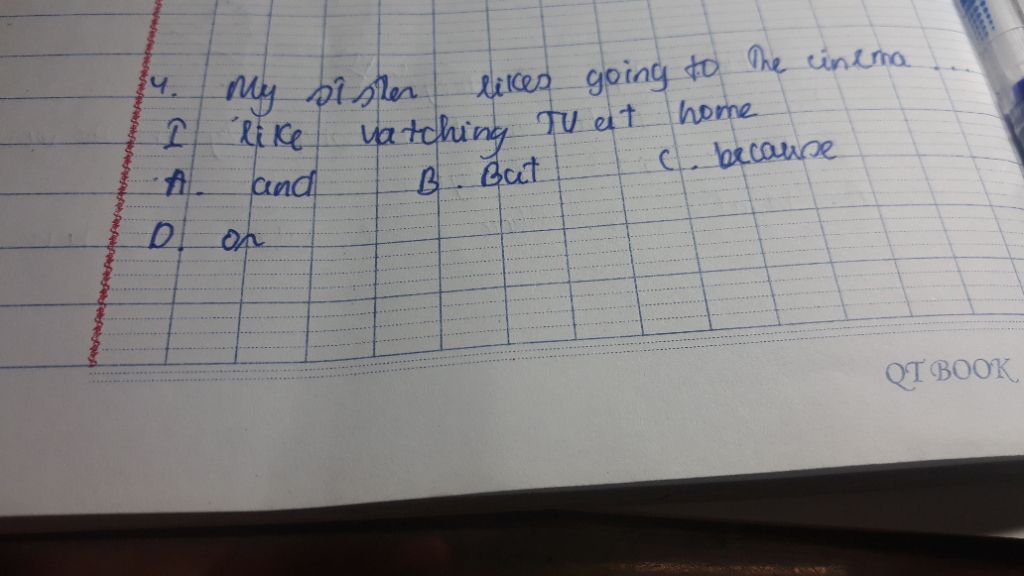 4. My sister likes going to the cinema ...
I like vatching TV at home
A. and B. But C. because
D. or
QT BOOK